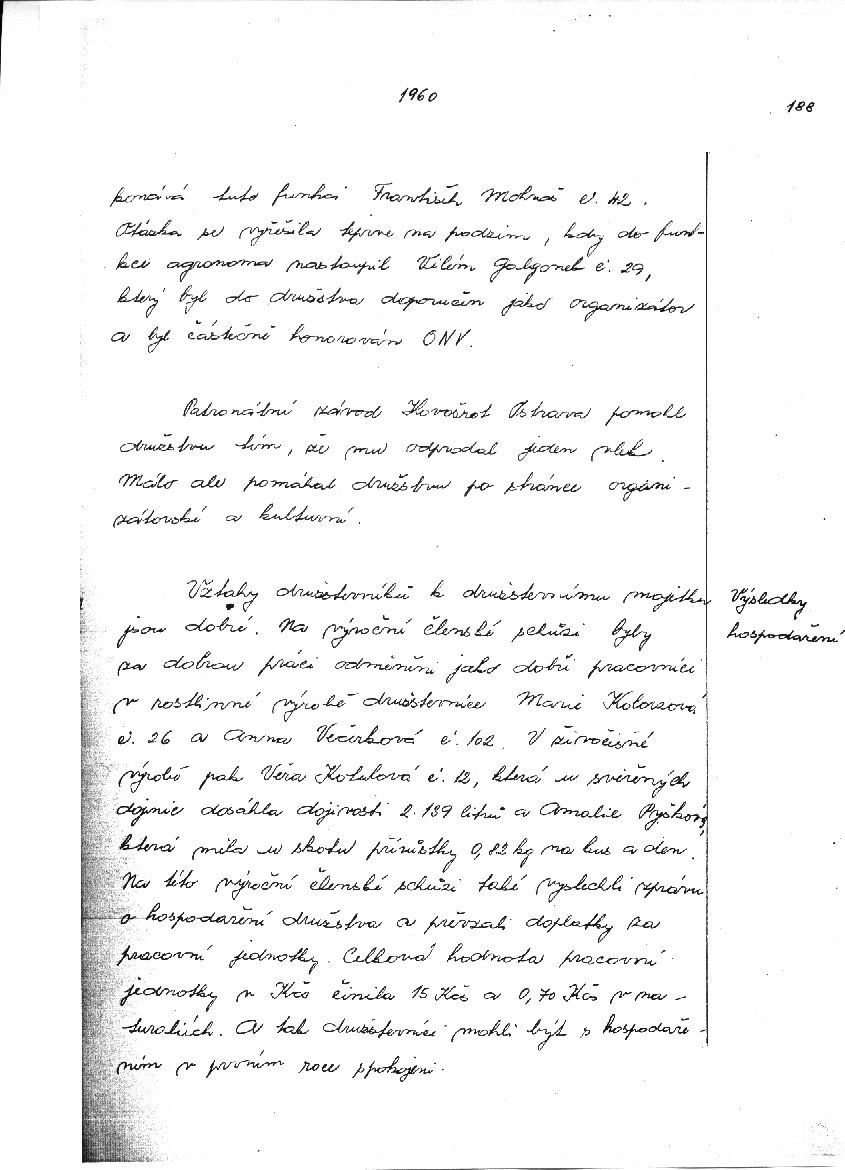 1960
188
konává tuto funkci František Mohnáč č. 42.
Otázka se vyřešila teprve na podzim, kdy do fun-
kce agronoma nastoupil Vilém Galgonek č. 29,
který byl do družstva doporučen jako organizátor
a byl částečně honorován ONV.
Patronátní závod Kovošrot Ostrava pomohl
družstvu tím, že mu odprodal jeden vlek.
Málo ale pomáhal družstvu po stránce organi-
zátorské a kulturní.
Vztahy družstevníků k družstevnímu majetku
Výsledky
hospodaření
jsou dobré. Na výroční členské schůzi byly
za dobrou práci odměněni jako dobří pracovníci
v rostlinné výrobě družstevnice Marie Kolorzová
č. 26 a Anna Večerková č. 102. V živočisné
výrobě pak Věra Kotalová č. 12, která u svěřených
dojnic dosáhla dojivosti 2.139 litrů a Amalie Ryšková,
která měla u skotu přírůstky 0,82 kg na kus a den.
Na této výroční členské schůzi také vyslechli zprávu
o hospodaření družstva a převzali doplatky za
pracovní jednotky. Celková hodnota pracovní
jednotky v Kčs činila 15 Kčs a 0,70 Kčs v na-
turaliích. A tak družstevníci mohli být s hospodaře-
ním v prvním roce spokojeni.